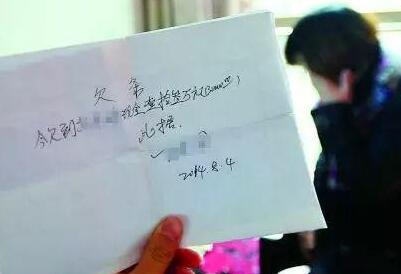 欠条
今欠到 现金叁拾万元(300000
此据.
2014.8.4